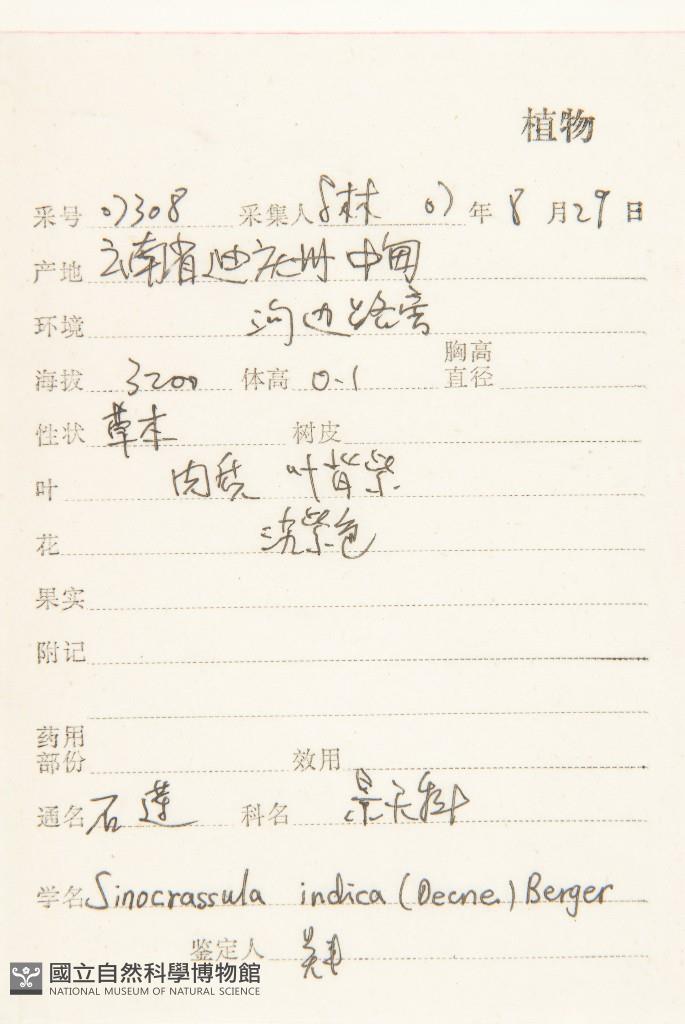 植物
采号 07308 采集人 林 07 年 8 月 29 日
产地 云南省迪庆州 中甸
环境 沟边路旁
海拔 3200 体高 0.1 胸高直径
性状 草本 树皮
叶 肉质 叶背紫
花 紫色
果实
附记
药用部份 效用
通名 石莲 科名 景天科
学名 Sinocrassula indica (Decne.) Berger
鉴定人
國立自然科學博物館
NATIONAL MUSEUM OF NATURAL SCIENCE